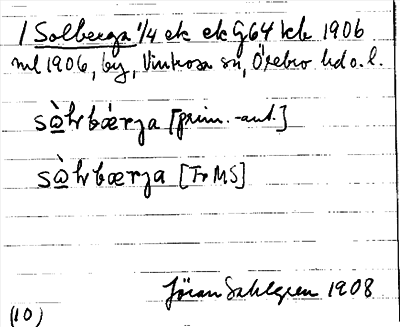 1 Solberga 1/4 ek ek G64 kck 1906
ml 1906, by, Vintrosa sn, Örebro hd o. l.
sὰlrbærga [prim.-ant.]
sὰlrbærga [Fr MS]
Jöran Sahlgren 1908
(10)